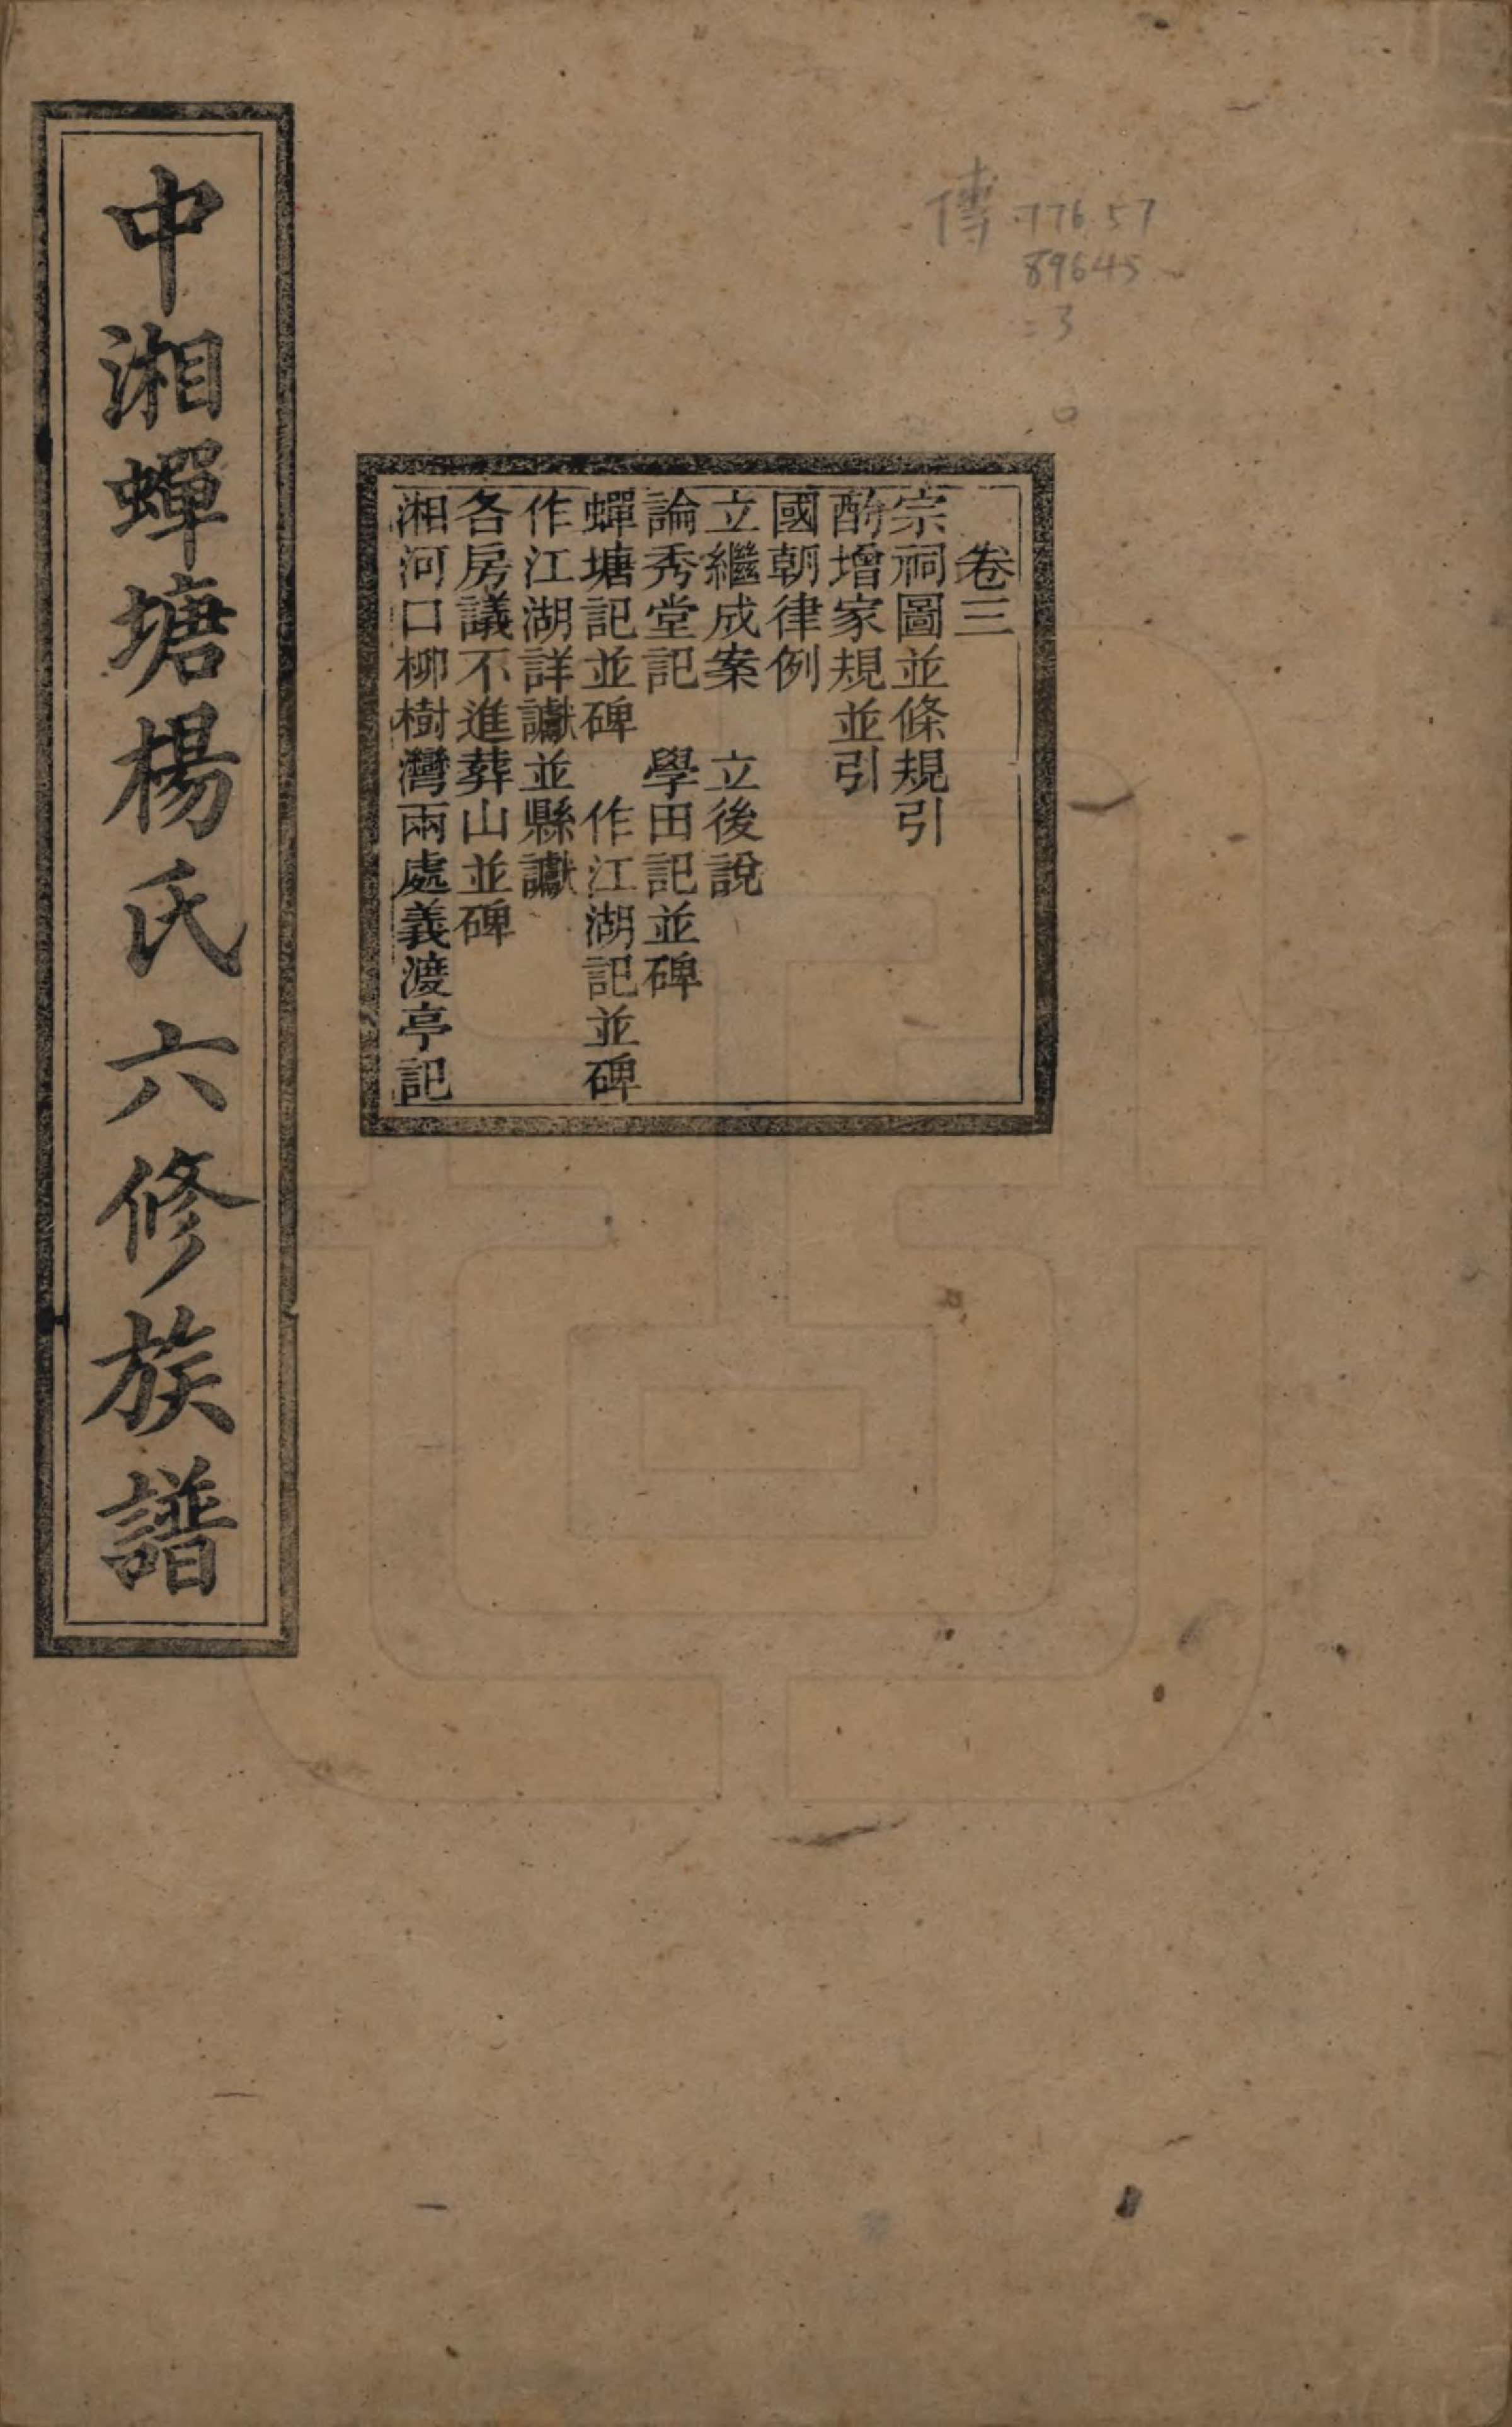 中湘蟬塘楊氏六修族譜
傳 776.57
89645
=3
卷三
宗祠圖並條規引
酌增家規並引
國朝律例
立繼成案 立後說
論秀堂記 學田記並碑
蟬塘記並碑 作江湖記並碑
作江湖詳讞並縣讞
各房議不進葬山並碑
湘河口柳樹灣兩處義渡亭記